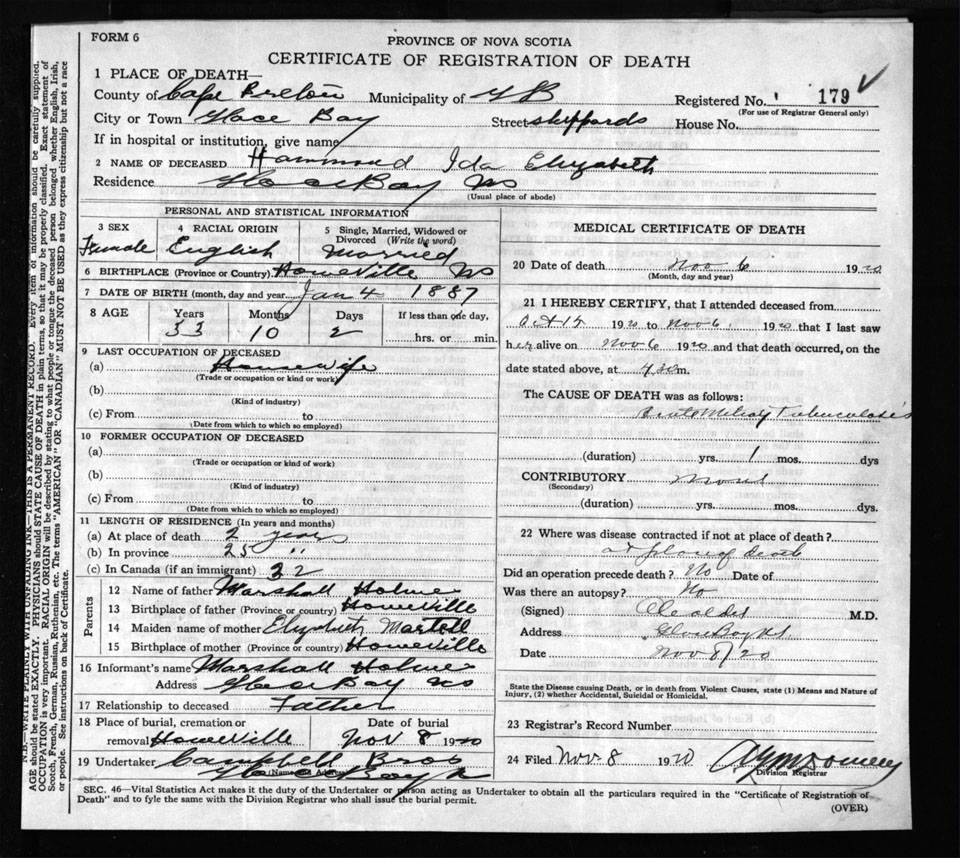 FORM 6
PROVINCE OF NOVA SCOTIA
CERTIFICATE OF REGISTRATION OF DEATH
1 PLACE OF DEATH—
County of Cape Breton Municipality of Registered No. 179
(For use of Registrar General only)
City or Town Glace Bay Street Sheppards House No.
If in hospital or institution, give name
2 NAME OF DECEASED Hammond Ida Elizabeth
Residence Glace Bay NS
(Usual place of abode)
PERSONAL AND STATISTICAL INFORMATION
3 SEX 4 RACIAL ORIGIN 5 Single, Married, Widowed or Divorced (Write the word)
Female English Married
6 BIRTHPLACE (Province or Country) Homeville NS
7 DATE OF BIRTH (month, day and year) Jan 4 1887
8 AGE Years Months Days If less than one day,
33 10 2 hrs. or min.
9 LAST OCCUPATION OF DECEASED
(a) Housewife
(Trade or occupation or kind or work)
(b)
(Kind of industry)
(c) From to
(Date from which to which so employed)
10 FORMER OCCUPATION OF DECEASED
(a)
(Trade or occupation or kind of work)
(b)
(Kind of industry)
(c) From to
(Date from which to which so employed)
11 LENGTH OF RESIDENCE (In years and months)
(a) At place of death 2 years
(b) In province 25 "
(c) In Canada (if an immigrant) 32
Parents
12 Name of father Marshall Holmes
13 Birthplace of father (Province or country) Homeville
14 Maiden name of mother Elizabeth Martell
15 Birthplace of mother (Province or country) Homeville
16 Informant's name Marshall Holmes
Address Glace Bay NS
17 Relationship to deceased Father
18 Place of burial, cremation or Date of burial
removal Homeville Nov 8 1920
19 Undertaker Campbell Bros
(Name and Address) Glace Bay
MEDICAL CERTIFICATE OF DEATH
20 Date of death Nov 6 1920
(Month, day and year)
21 I HEREBY CERTIFY, that I attended deceased from
Oct 15 1920 to Nov 6 1920 that I last saw
her alive on Nov 6 1920 and that death occurred, on the
date stated above, at 4 m.
The CAUSE OF DEATH was as follows:
Tuberculosis
(duration) yrs. 1 mos. dys
CONTRIBUTORY
(Secondary)
(duration) yrs. mos. dys.
22 Where was disease contracted if not at place of death?
at place of death
Did an operation precede death? No Date of
Was there an autopsy? No
(Signed) M.D.
Address Glace Bay NS.
Date Nov 8/20
State the Disease causing Death, or in death from Violent Causes, state (1) Means and Nature of
Injury, (2) whether Accidental, Suicidal or Homicidal.
23 Registrar's Record Number
24 Filed Nov. 8 1920
Division Registrar
SEC. 46—Vital Statistics Act makes it the duty of the Undertaker or person acting as Undertaker to obtain all the particulars required in the "Certificate of Registration of
Death" and to fyle the same with the Division Registrar who shall issue the burial permit.
(OVER)
N.B.—WRITE PLAINLY WITH UNFADING INK—THIS IS A PERMANENT RECORD. Every item of information should be carefully supplied.
AGE should be stated EXACTLY. PHYSICIANS should STATE CAUSE OF DEATH in plain terms, so that it may be properly classified. Exact statement of
OCCUPATION is very important. RACIAL ORIGIN will be described by stating to what people or tongue the deceased person belonged whether English, Irish,
Scotch, French, German, Russian, Ruthenian, etc. The terms "AMERICAN" OR "CANADIAN" MUST NOT BE USED as they express citizenship but not a race
or people. See instructions on back of Certificate.